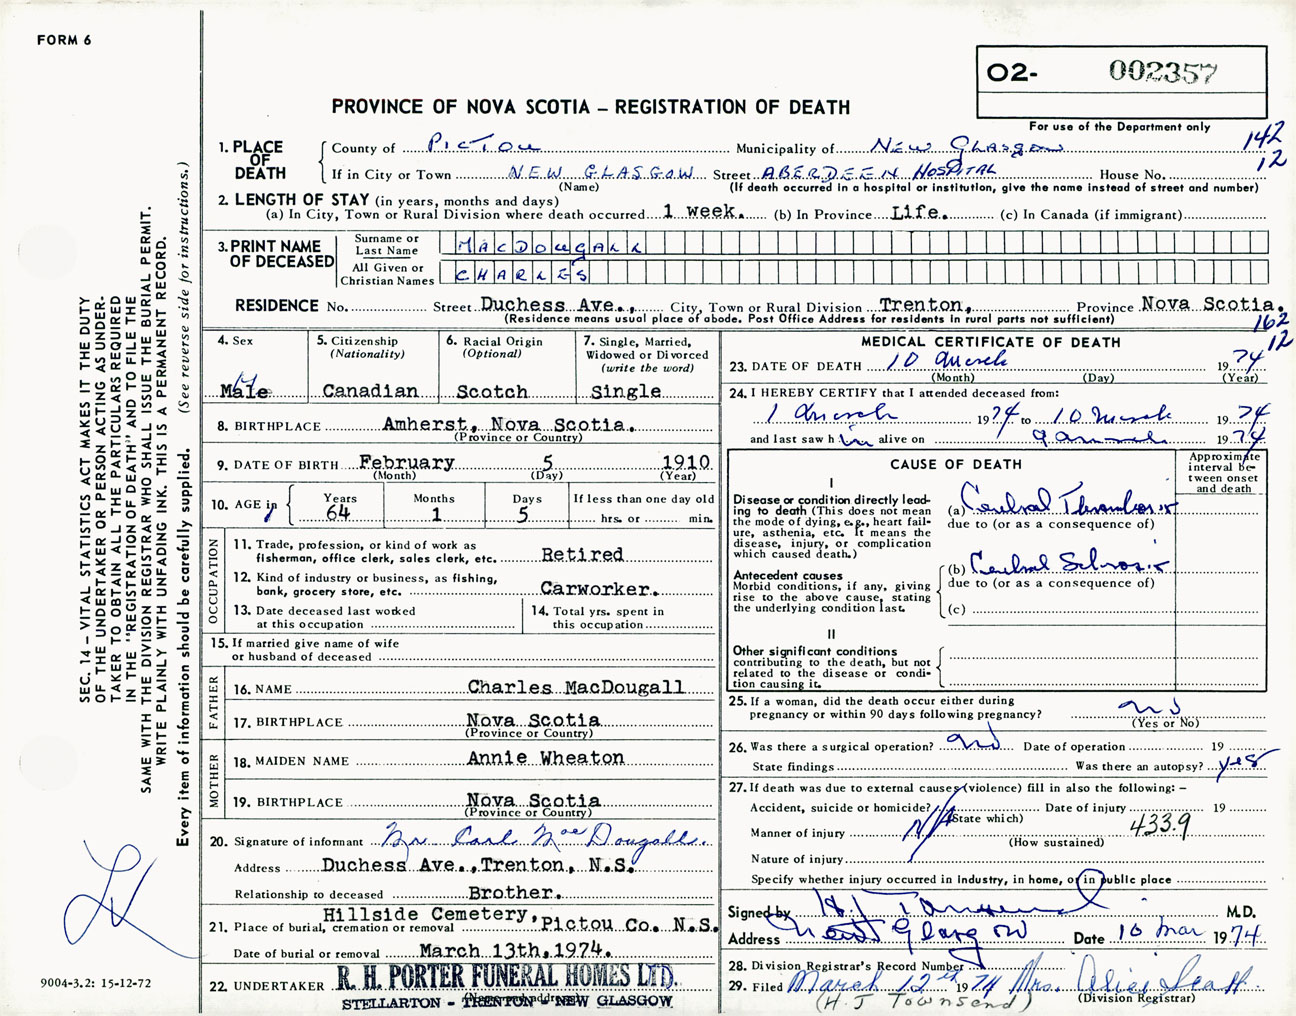 FORM 6
O2- 002357
PROVINCE OF NOVA SCOTIA – REGISTRATION OF DEATH
For use of the Department only
142
12
1. PLACE OF DEATH
County of PICTOU Municipality of NEW GLASGOW
If in City or Town NEW GLASGOW Street ABERDEEN HOSPITAL House No.
(Name) (If death occurred in a hospital or institution, give the name instead of street and number)
2. LENGTH OF STAY (in years, months and days)
(a) In City, Town or Rural Division where death occurred 1 week. (b) In Province Life. (c) In Canada (if immigrant)
3. PRINT NAME OF DECEASED
Surname or Last Name MACDOUGALL
All Given or Christian Names CHARLES
RESIDENCE No. Street Duchess Ave., City, Town or Rural Division Trenton, Province Nova Scotia.
(Residence means usual place of abode. Post Office Address for residents in rural parts not sufficient)
162
12
4. Sex
Male M
5. Citizenship
(Nationality)
Canadian
6. Racial Origin
(Optional)
Scotch
7. Single, Married,
Widowed or Divorced
(write the word)
Single
8. BIRTHPLACE Amherst, Nova Scotia.
(Province or Country)
9. DATE OF BIRTH February 5 1910
(Month) (Day) (Year)
10. AGE in
Years Months Days If less than one day old
64 1 5 hrs. or min.
OCCUPATION
11. Trade, profession, or kind of work as
fisherman, office clerk, sales clerk, etc. Retired
12. Kind of industry or business, as fishing,
bank, grocery store, etc. Carworker.
13. Date deceased last worked
at this occupation
14. Total yrs. spent in
this occupation
15. If married give name of wife
or husband of deceased
FATHER
16. NAME Charles MacDougall
17. BIRTHPLACE Nova Scotia
(Province or Country)
MOTHER
18. MAIDEN NAME Annie Wheaton
19. BIRTHPLACE Nova Scotia
(Province or Country)
20. Signature of informant Mr Carl MacDougall.
Address Duchess Ave., Trenton, N.S.
Relationship to deceased Brother.
21. Place of burial, cremation or removal Hillside Cemetery, Pictou Co. N.S.
Date of burial or removal March 13th, 1974.
22. UNDERTAKER R. H. PORTER FUNERAL HOMES LTD.
STELLARTON - TRENTON - NEW GLASGOW
MEDICAL CERTIFICATE OF DEATH
23. DATE OF DEATH 10 March 1974
(Month) (Day) (Year)
24. I HEREBY CERTIFY that I attended deceased from:
1 March 1974 to 10 March 1974
and last saw him alive on 9 March 1974
CAUSE OF DEATH
Approximate
interval be-
tween onset
and death
I
Disease or condition directly lead-
ing to death (This does not mean
the mode of dying, e.g., heart fail-
ure, asthenia, etc. It means the
disease, injury, or complication
which caused death.)
(a) Cerebral Thrombosis
due to (or as a consequence of)
Antecedent causes
Morbid conditions, if any, giving
rise to the above cause, stating
the underlying condition last.
(b) Cerebral Sclerosis
due to (or as a consequence of)
(c)
II
Other significant conditions
contributing to the death, but not
related to the disease or condi-
tion causing it.
25. If a woman, did the death occur either during
pregnancy or within 90 days following pregnancy? no
(Yes or No)
26. Was there a surgical operation? no Date of operation 19
State findings Was there an autopsy? yes
27. If death was due to external causes (violence) fill in also the following: –
Accident, suicide or homicide? N/A Date of injury 19
(State which)
Manner of injury 433.9
(How sustained)
Nature of injury
Specify whether injury occurred in industry, in home, or in public place
Signed by H J Townsend M.D.
Address New Glasgow Date 10 Mar 1974
28. Division Registrar's Record Number
29. Filed March 12th 1974 Mrs. Alice Scott.
(H. J Townsend) (Division Registrar)
SEC. 14 – VITAL STATISTICS ACT MAKES IT THE DUTY
OF THE UNDERTAKER OR PERSON ACTING AS UNDER-
TAKER TO OBTAIN ALL THE PARTICULARS REQUIRED
IN THE "REGISTRATION OF DEATH" AND TO FILE THE
SAME WITH THE DIVISION REGISTRAR WHO SHALL ISSUE THE BURIAL PERMIT.
WRITE PLAINLY WITH UNFADING INK. THIS IS A PERMANENT RECORD.
Every item of information should be carefully supplied. (See reverse side for instructions.)
9004-3.2: 15-12-72